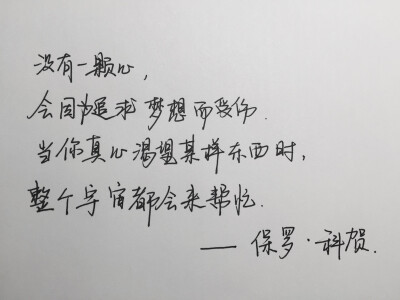 没有一颗心，
会因为追求梦想而受伤.
当你真心渴望某样东西时，
整个宇宙都会来帮忙.
—— 保罗·科贺.